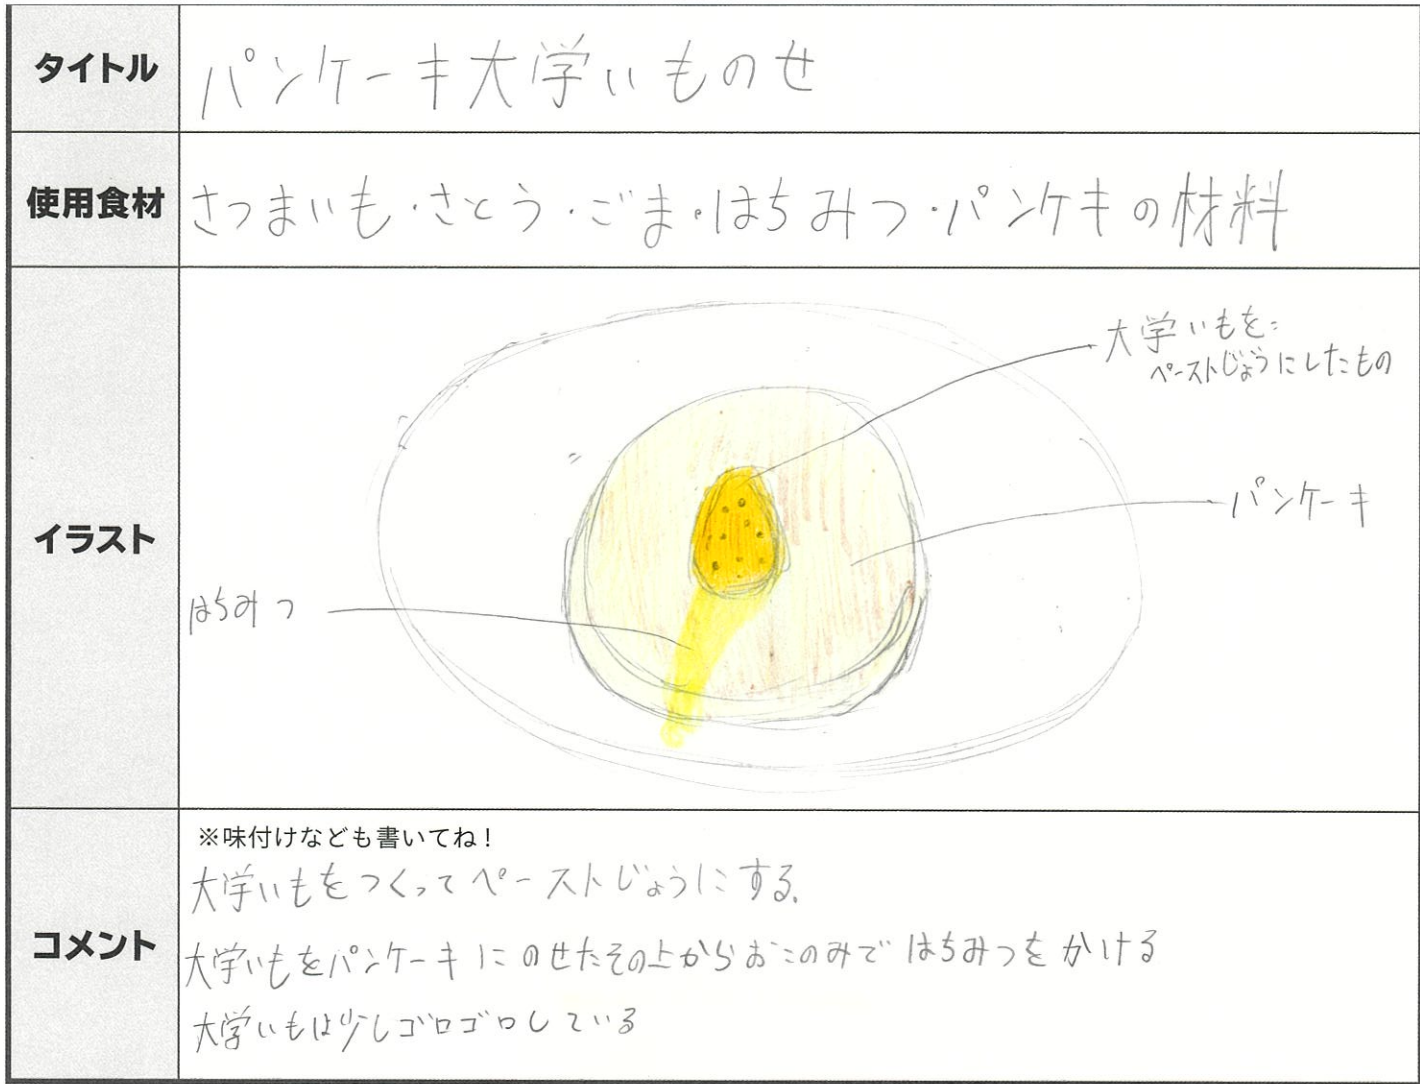 タイトル
パンケーキ大学いものせ
使用食材
さつまいも・さとう・ごま・はちみつ・パンケキの材料
イラスト
大学いもを
ペーストじょうにしたもの
パンケーキ
はちみつ
コメント
※味付けなども書いてね！
大学いもをつくってペーストじょうにする。
大学いもをパンケーキにのせたその上からおこのみではちみつをかける
大学いもは少しゴロゴロしている